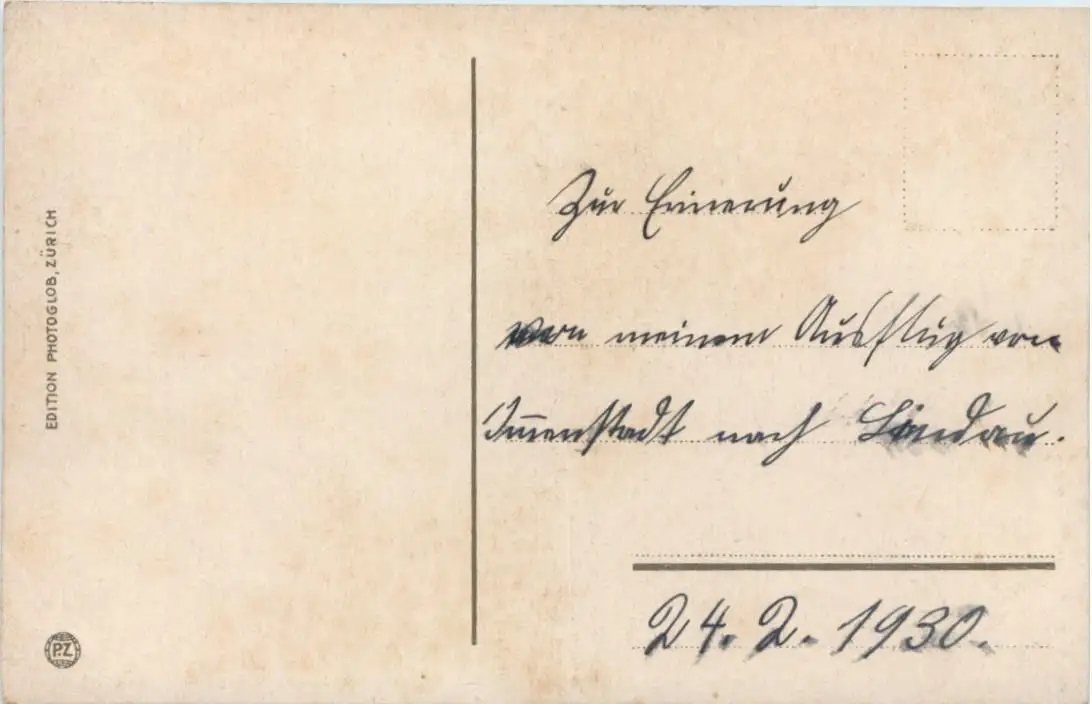 Zur Erinerung
von meinem Ausflug von
Immenstadt nach Lindau.
24. 2. 1930.
EDITION PHOTOGLOB, ZÜRICH
P.Z.